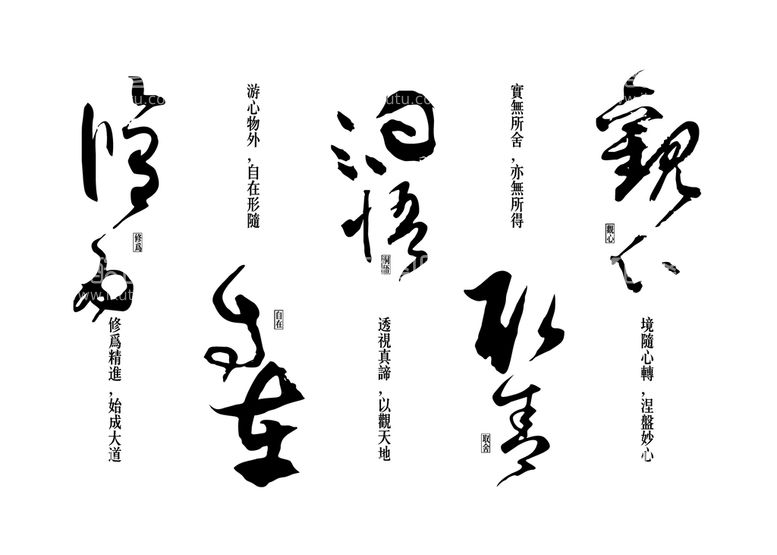 觀心
觀心
境隨心轉,涅盤妙心
實無所舍,亦無所得
取舍
取舍
洞悟
洞悟
透視真諦,以觀天地
游心物外,自在形隨
自在
自在
修爲
修爲
修爲精進,始成大道